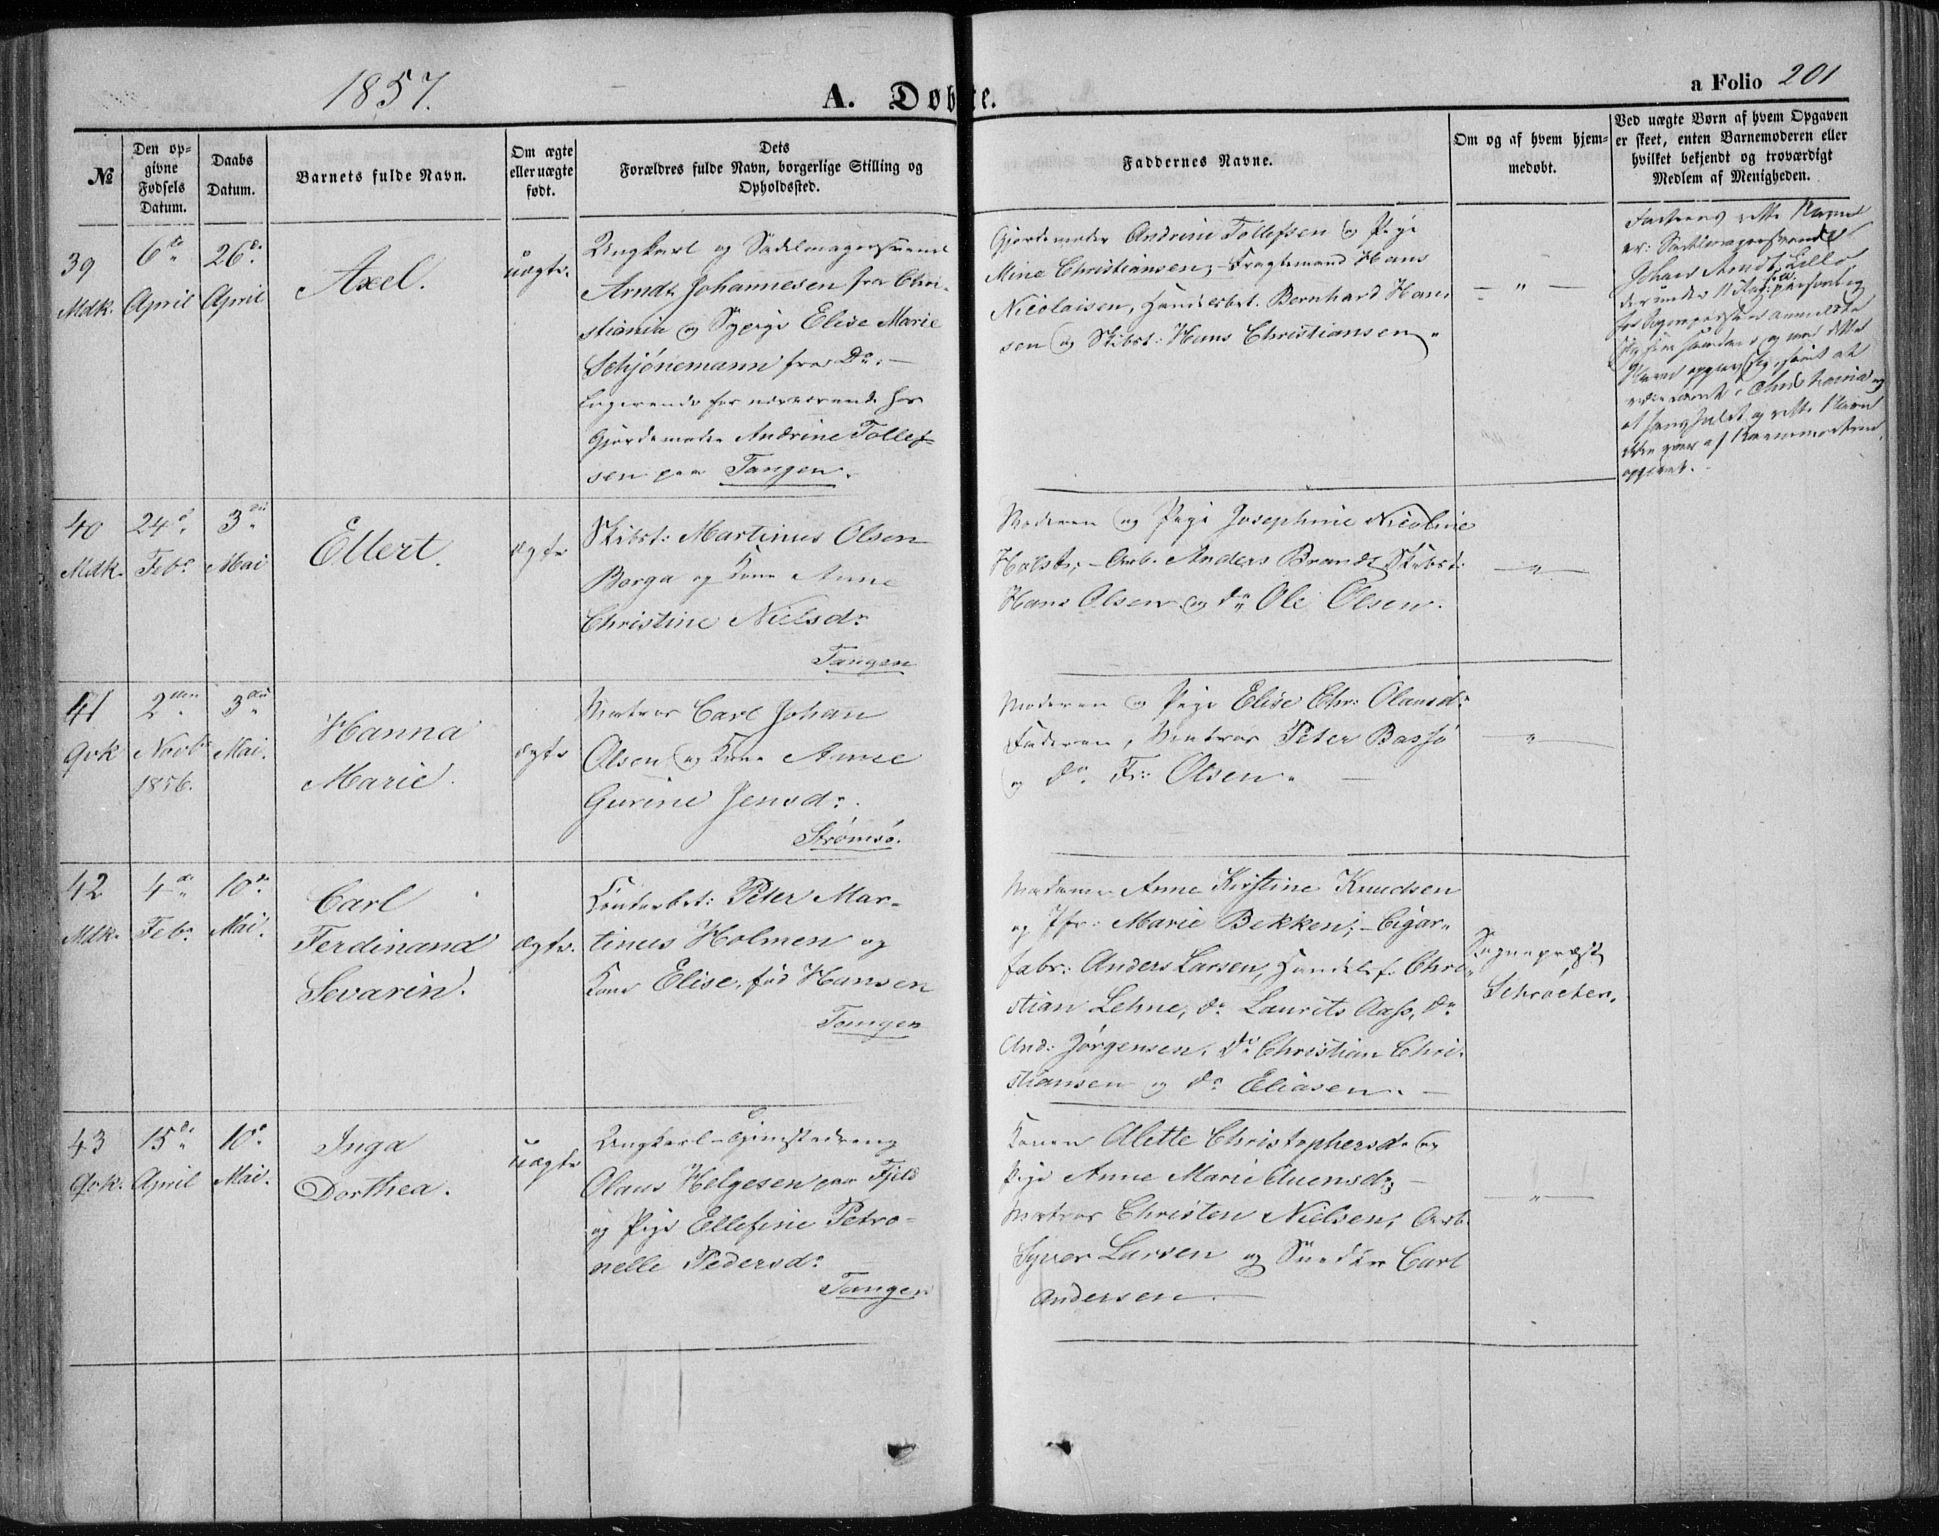 1857.
A. Døbte.
a Folio 201
№
Den op-
givne
Fødsels
Datum.
Daabs
Datum.
Barnets fulde Navn.
Om ægte
eller uægte
født.
Dets
Forældres fulde Navn, borgerlige Stilling og
Opholdssted.
Faddernes Navne.
Om og af hvem hjem-
medøbt.
Ved uægte Børn af hvem Opgaven
er skeet, enten Barnemoderen eller
hvilket bekjendt og troværdigt
Medlem af Menigheden.
39
Mdk.
6te
April
26de
April
Axel.
uægte.
Ungkarl og Sadelmagersvend
Arndt Johannesen fra Chri-
stiania og Sypige Elise Marie
Schjönemann fra Do. —
Logerende for nærværende hos
Gjordemoder Andrine Tollef-
sen paa Tangen.
Gjordemoder Andrine Tollefsen og Pige
Mine Christiansen, – Fragtemand Hans
Nicolaisen, Handelsbet. Bernhard Han-
sen og Skibst: Hans Christiansen.
— " —
Faderens rette Navn
er: Sadelmagersvend
Johan Arndt Lillo,
og var dette
Christiania og
rette Navn
af Barnemoderen
opgivet.
40
Mdk.
24de
Febr.
3die
Mai
Ellert.
ægte
Skibst: Martinus Olsen
Borga og Kone Anne
Christine Nielsdr.
Tangen
Moderen og Pige Josephine Nicoline
Holst, – Arb. Anders Brandt, Skibst:
Hans Olsen og do Ole Olsen.
— " —
41
Qvk
2den
Novbr
1856.
3die
Mai.
Hanna
Marie.
ægte
Matros Carl Johan
Olsen og Kone Anne
Gurine Jensdr.
Strømsö.
Moderen og Pige Elise Chr: Olausd:
Faderen, Matros Peter Bassö
og do. Fr: Olsen. —
— " —
42
Mdk.
4de
Febr.
10de
Mai.
Carl
Ferdinand
Severin.
ægte.
Contorbet: Peter Mar-
tinus Holmen og
Kone Elise, fød Hansen
Tangen
Madame Anne Kirstine Knudsen
og Jfr: Marie Bekken; – Cigar-
fabr: Anders Larsen, Handelsf. Chri-
stian Lehne, do Laurits Aass, do
And: Jørgensen, do Christian Chri-
stiansen og do Eliasen. —
Sognepræst
Schroeter.
43
Qvk.
15de
April
10de
Mai.
Inga
Dorthea.
uægte
Ungkarl
Olaus Helgesen paa Fjeld
og Pige Ellefine Petro-
nelle Pedersdr.
Tangen
Konen Alette Christophersd. og
Pige Anne Marie Evensdr; –
Matros Christen Nielsen, Arb.
Syver Larsen og Snedker Carl
Andersen. —
— " —